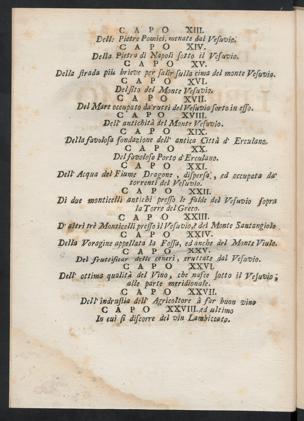 CAPO XIII.
Delle Pietre Pomici, menate dal Vesuvio.
CAPO XIV.
Della Pietra di Napoli sotto il Vesuvio.
CAPO XV.
Della strada più brieve per salir sulla cima del monte Vesuvio.
CAPO XVI.
Del sito del Monte Vesuvio.
CAPO XVII.
Del Mare occupato da' rutti del Vesuvio sorto in esso.
CAPO XVIII.
Dell' antichità del Monte Vesuvio.
CAPO XIX.
Della favolosa fondazione dell' antica Città d' Erculano.
CAPO XX.
Del favoloso Porto d'Erculano.
CAPO XXI.
Dell' Acqua del Fiume Dragone, dispersa, ed occupata da'
torrenti del Vesuvio.
CAPO XXII.
Di due monticelli antichi presso le falde del Vesuvio sopra
la Torre del Greco.
CAPO XXIII.
D' altri trè Monticelli presso il Vesuvio, e del Monte Santangiolo
CAPO XXIV.
Della Voragine appellata la Fossa, ed anche del Monte Viulo.
CAPO XXV.
Del fruttificar delle ceneri, eruttate dal Vesuvio.
CAPO XXVI.
Dell' ottima qualità del Vino, che nasce sotto il Vesuvio,
alle parte meridionale.
CAPO XXVII.
Dell' industria dell' Agricoltore à far buon vino
CAPO XXVIII. ed ultimo
In cui si discorre del vin Lambiccato.